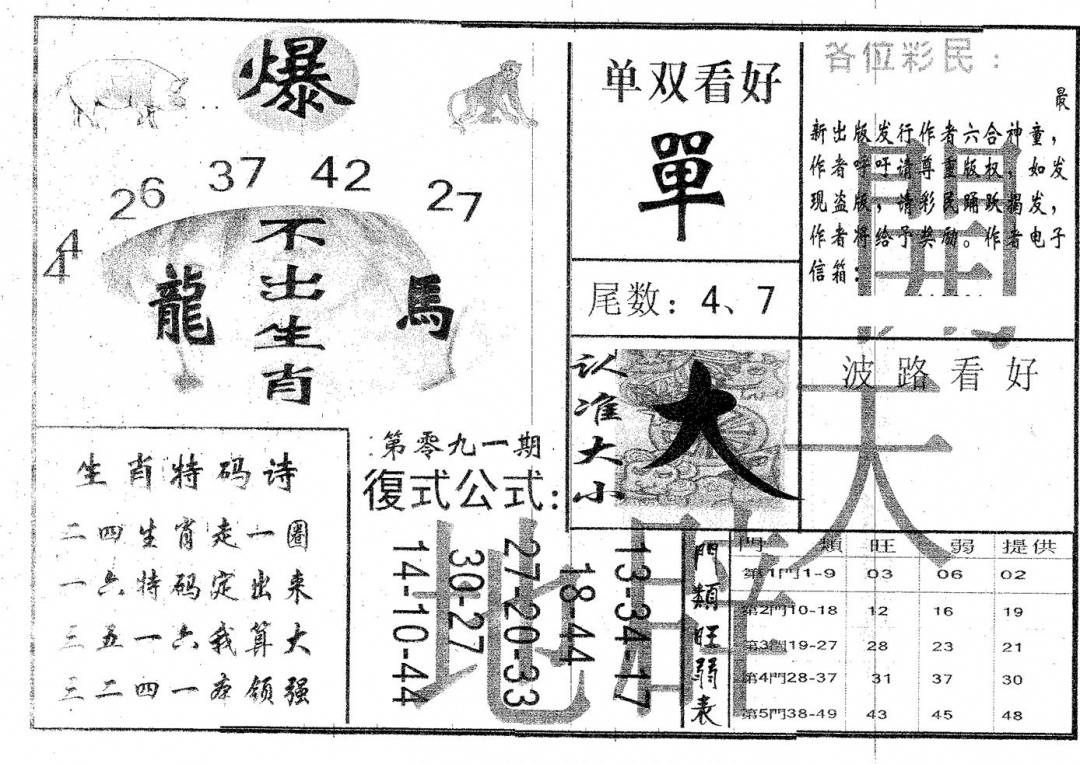 爆
26 37 42 27
44
不出生肖
龍 馬
单双看好
單
尾数：4、7
各位彩民：
最
新出版发行作者六合神童，
作者呼吁请尊重版权，如发
现盗版，请彩民踊跃揭发，
作者将给予奖励。作者电子
信箱：
認准大小
大
波路看好
開
天
地
生肖特码诗
二四生肖走一圈
一六特码定出来
三五一六我算大
三二四一亦领强
第零九一期
復式公式：
13-34-17
18-44
27-20-33
30-27
14-10-44
門類旺弱表
門類 旺 弱 提供
第1門1-9 03 06 02
第2門10-18 12 16 19
第3門19-27 28 23 21
第4門28-37 31 37 30
第5門38-49 43 45 48